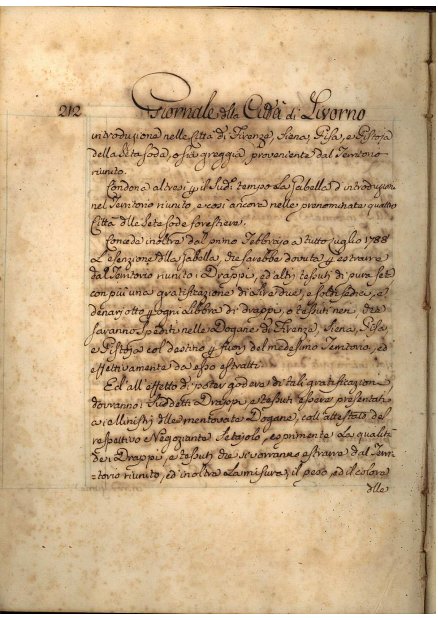 212 Giornale della Città di Livorno
introduzione nelle Città di Firenze, Siena, Pisa, e Pistoja
della Seta soda, o sia greggia proveniente dal Territorio
riunito.
Condona altresì p il sud.º tempo La gabella d'introduzioni
nel Territorio riunito, e così ancora nelle prenominate quattro
Città dlle Sete sode forestiere.
Concede inoltre dal primo Febbrajo a tutto Luglio 1788
L'esenzione dlla gabella, che sarebbe dovuta p estrarre
dal Territorio riunito i Drappi, ed altri tessuti di pura seta
con più una gratificazione di Lire due, e soldi sedici, e
denari otto p ogni Libbra di drappi, o tessuti neri, che
saranno spediti nelle Dogane di Firenze, Siena, Pisa,
e Pistoja col destino p fuori del medesimo Territorio, ed
effettivamente da esso estratti.
Ed all'effetto di poter godere di tali gratificazioni
dovranno i suddetti Drappi e tessuti essere presentati
ai Ministri dlle mentovate Dogane, coll'attestato del
respettivo Negoziante Setajolo, esprimente La qualità
dei Drappi, e tessuti che si vorranno estrarre dal Terri-
=torio riunito, ed inoltre La misura, il peso, ed il colore
dlle